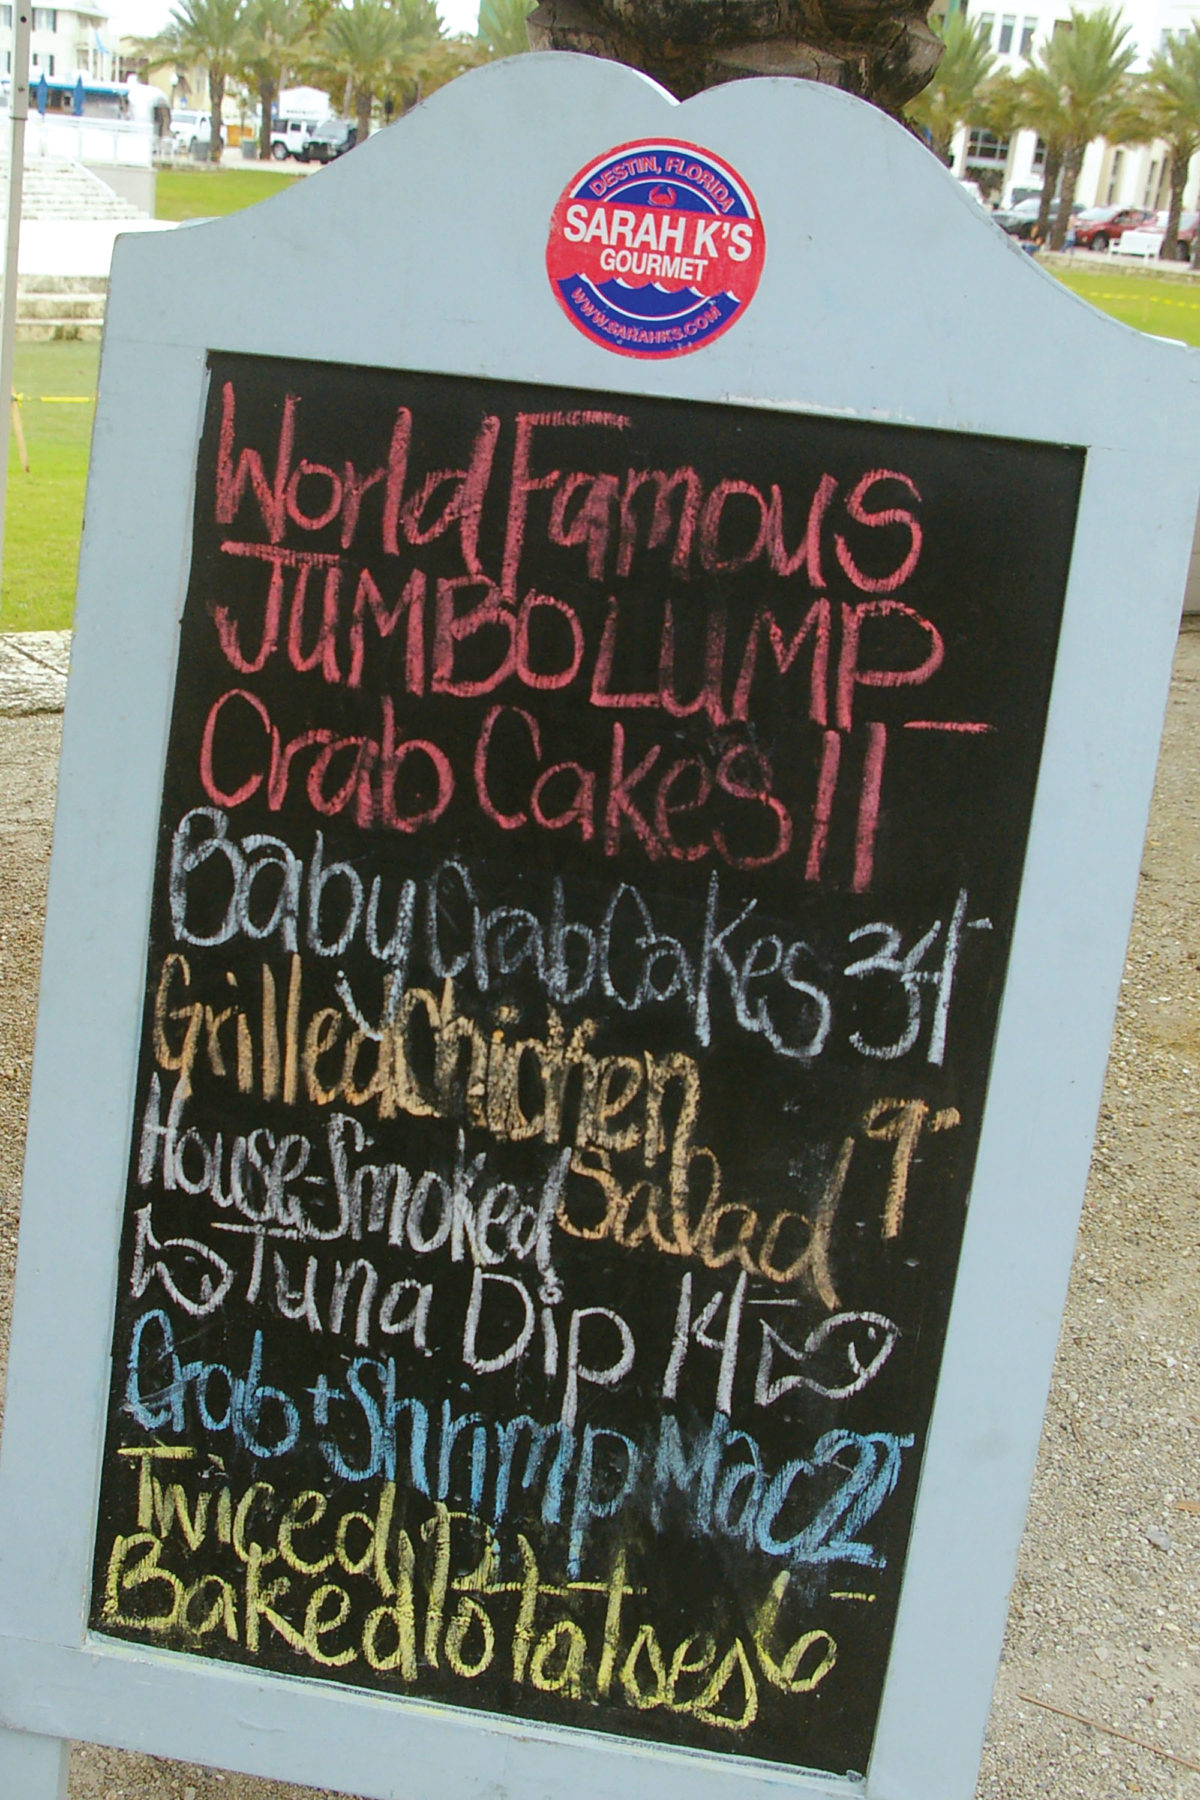 DESTIN, FLORIDA
SARAH K'S
GOURMET
WWW.SARAHKS.COM
World Famous
JUMBO LUMP
Crab Cakes 11-
Baby Crab Cakes 34-
Grilled Chicken
Salad 9-
House-Smoked
Tuna Dip 14-
Crab + Shrimp Mac 22-
Twiced
Baked Potatoes 6-